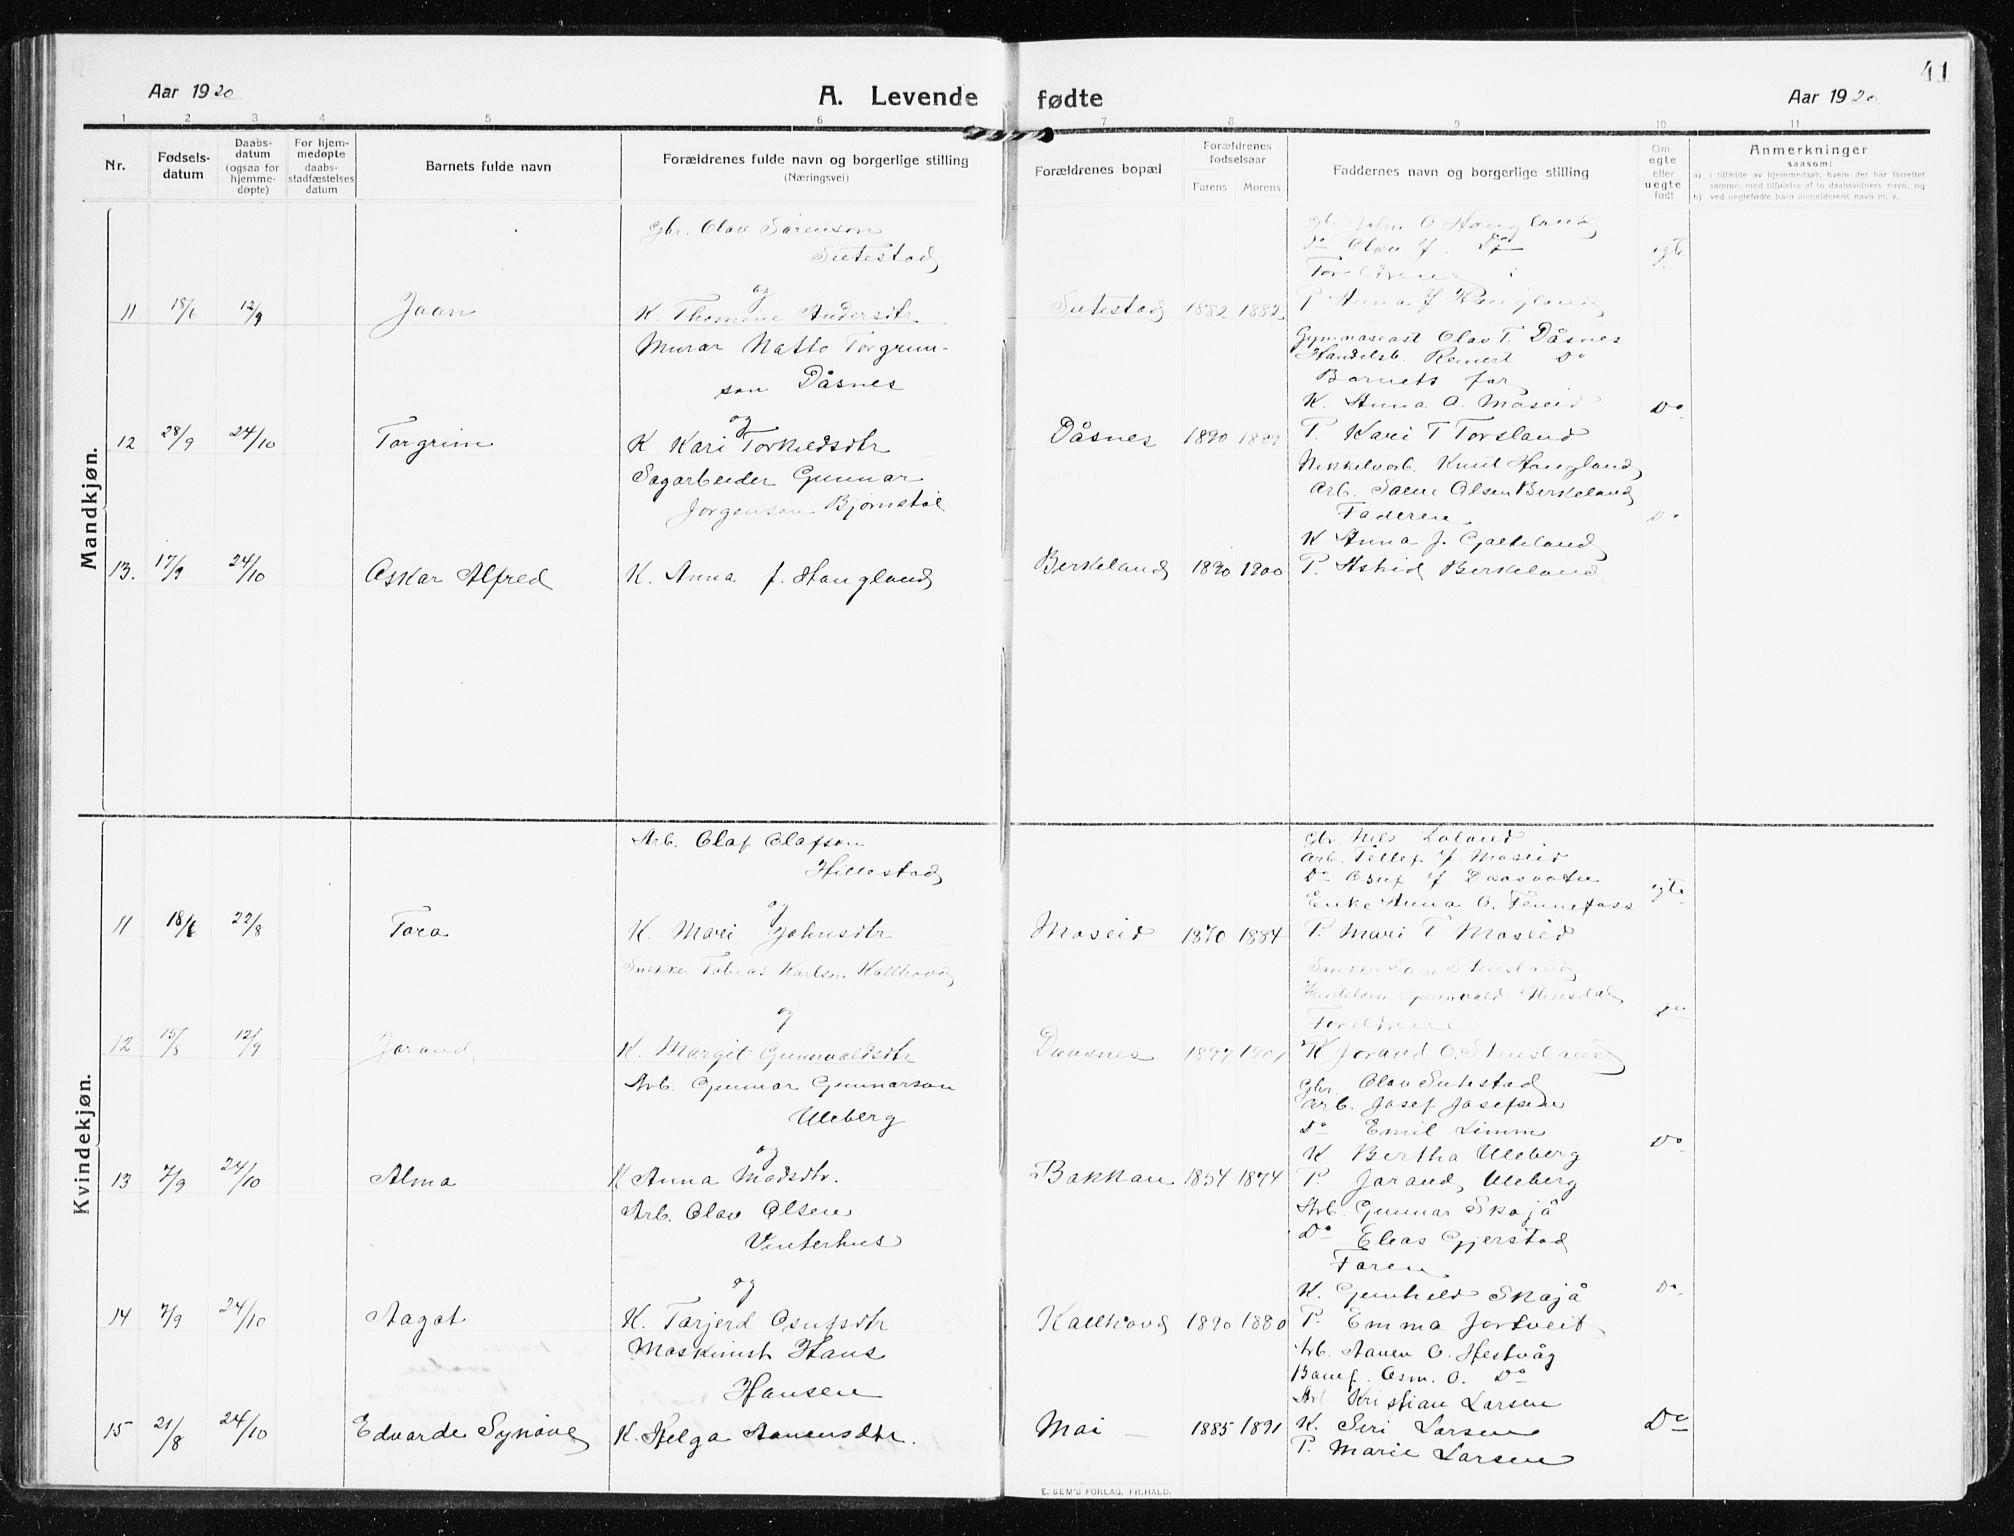 Aar 1920
A. Levende fødte
Aar 1920
41
1 2 3 4 5 6 7 8 9 10 11
Nr.
Fødsels-
datum
Daabs-
datum
(ogsaa for
hjemme-
døpte)
For hjem-
medøpte
daabs-
stadfæstelses
datum
Barnets fulde navn
Forældrenes fulde navn og borgerlige stilling
(Næringsvei)
Forældrenes bopæl
Forældrenes
fødselsaar
Farens Morens
Faddernes navn og borgerlige stilling
Om
egte
eller
uegte
født
Anmerkninger
saasom:
a) i tilfælde av hjemmedaab, hvem der har forrettet
samme, med tilføielse af to daabsvidners navn, og
b) ved uegtefødte barn anmelderens navn m. v.
Mandkjøn.
Gbr. Olav Sørenson
Sutestad
og
11 18/6 12/9 Jaan K. Thomine Andersdtr Sutestad 1882 1882
Gbr John O Haugland
Do Olav J. Do
Foreldrene
P. Anna J Haugland
egte
Murar Natto Torgrim-
son Dåsnes
og
12 28/9 24/10 Torgrim K Kari Torkeldsdtr Dåsnes 1890 1889
Gymnaseast Olav T. Dåsnes
Handelsb. Reinert Do
Barnets far
K. Anna O. Moseid
P. Kari T Torsland
Do
Sagarbeider Gunnar
Jorgenson Bjørnstøl
13. 17/9 24/10 Oskar Alfred K. Anna J. Haugland Berkeland 1890 1900
Nikkelverb. Knut Haugland
Arb. Olsen Berkeland
Faderen
K Anna J. Gjelteland
P. Astrid Berkeland
Do
Kvindekjøn.
Arb. Olaf Olafson
Hillestad
og
11 18/6 22/8 Tora K. Mari Johnsdtr Moseid 1870 1884
Gbr. Nels Loland
Arb. Tellef J. Moseid
Do Osuf J. Daasvatn
Enke Anna O. Fennefoss
P. Mari T Moseid
egte
Snekker Tobias Karlson Kallhovd
og
12 15/8 12/9 Jorand K. Margit Gunnvaldsdtr Daasnes 1897 1901
Stensland
Foreldrene
K Jorand O. Stensland
Do
Arb. Gunnar Gunnarson
Uleberg
og
13 7/9 24/10 Alma K Anna Madsdtr. Bakkan 1854 1874
Gbr Olav Sutestad
Arb. Josef Josefsen
Do Emil Limm
K Bertha Uleberg
P. Jorand Uleberg
Do
Arb. Olav Olsen
Vinterhus
og
14 7/9 24/10 Aagot K. Torjerd Osufsdtr Kallhovd 1890 1880
Arb. Gunnar Skajå
Do Eleas Gjerstad
Faren
K. Gunhild Skajå
P. Emma Jortveit
Do
Maskinist Hans
Hansen
15 21/8 24/10 Edvarde Synøve K. Helga Aanensdtr. Moi 1885 1891
Arb. Aanen O. Hestvåg
Banef. Osm. O. Do
Arb Kristian Larsen
K. Siri Larsen
P. Marie Larsen
Do
E. SEM'S FORLAG, FR.HALD.